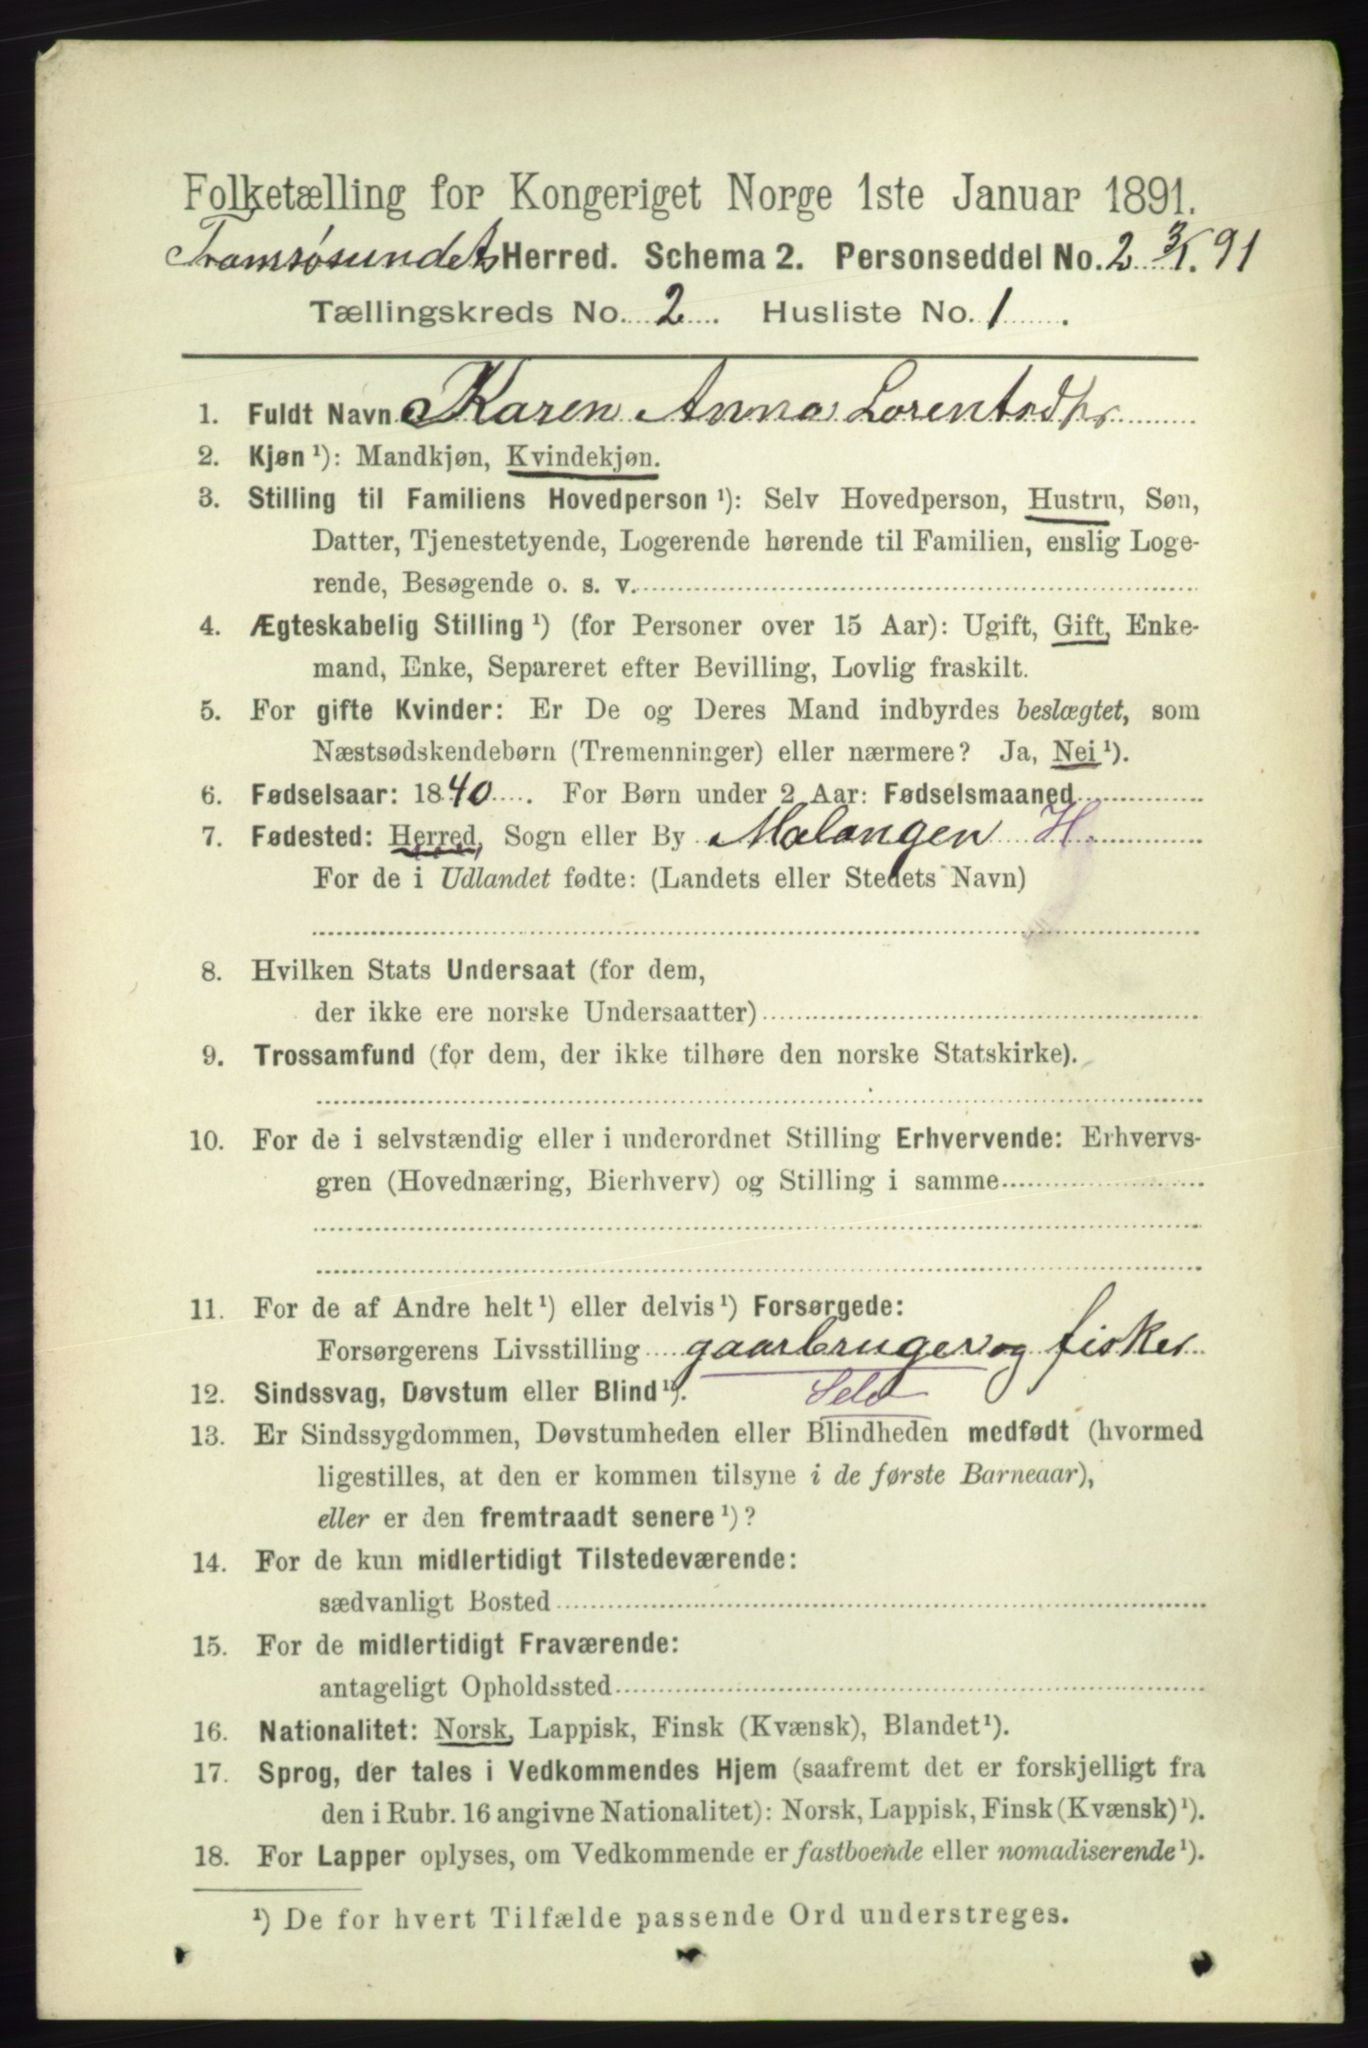 Folketælling for Kongeriget Norge 1ste Januar 1891.
Tromsøsundets Herred. Schema 2. Personseddel No. 2 3/1. 91
Tællingskreds No. 2. Husliste No. 1.
1. Fuldt Navn Karen Anna
2. Kjøn ¹): Mandkjøn, Kvindekjøn.
3. Stilling til Familiens Hovedperson ¹): Selv Hovedperson, Hustru, Søn,
Datter, Tjenestetyende, Logerende hørende til Familien, enslig Loge-
rende, Besøgende o. s. v.
4. Ægteskabelig Stilling ¹) (for Personer over 15 Aar): Ugift, Gift, Enke-
mand, Enke, Separeret efter Bevilling, Lovlig fraskilt.
5. For gifte Kvinder: Er De og Deres Mand indbyrdes beslægtet, som
Næstsødskendebørn (Tremenninger) eller nærmere? Ja, Nei ¹).
6. Fødselsaar: 1840. For Børn under 2 Aar: Fødselsmaaned
7. Fødested: Herred, Sogn eller By Malangen H.
For de i Udlandet fødte: (Landets eller Stedets Navn)
8. Hvilken Stats Undersaat (for dem,
der ikke ere norske Undersaatter)
9. Trossamfund (for dem, der ikke tilhøre den norske Statskirke).
10. For de i selvstændig eller i underordnet Stilling Erhvervende: Erhvervs-
gren (Hovednæring, Bierhverv) og Stilling i samme
11. For de af Andre helt ¹) eller delvis ¹) Forsørgede:
Forsørgerens Livsstilling gaarbruger og fisker
Selv
12. Sindssvag, Døvstum eller Blind ¹).
13. Er Sindssygdommen, Døvstumheden eller Blindheden medfødt (hvormed
ligestilles, at den er kommen tilsyne i de første Barneaar),
eller er den fremtraadt senere ¹)?
14. For de kun midlertidigt Tilstedeværende:
sædvanligt Bosted
15. For de midlertidigt Fraværende:
antageligt Opholdssted
16. Nationalitet: Norsk, Lappisk, Finsk (Kvænsk), Blandet ¹).
17. Sprog, der tales i Vedkommendes Hjem (saafremt det er forskjelligt fra
den i Rubr. 16 angivne Nationalitet): Norsk, Lappisk, Finsk (Kvænsk) ¹).
18. For Lapper oplyses, om Vedkommende er fastboende eller nomadiserende ¹).
¹) De for hvert Tilfælde passende Ord understreges.